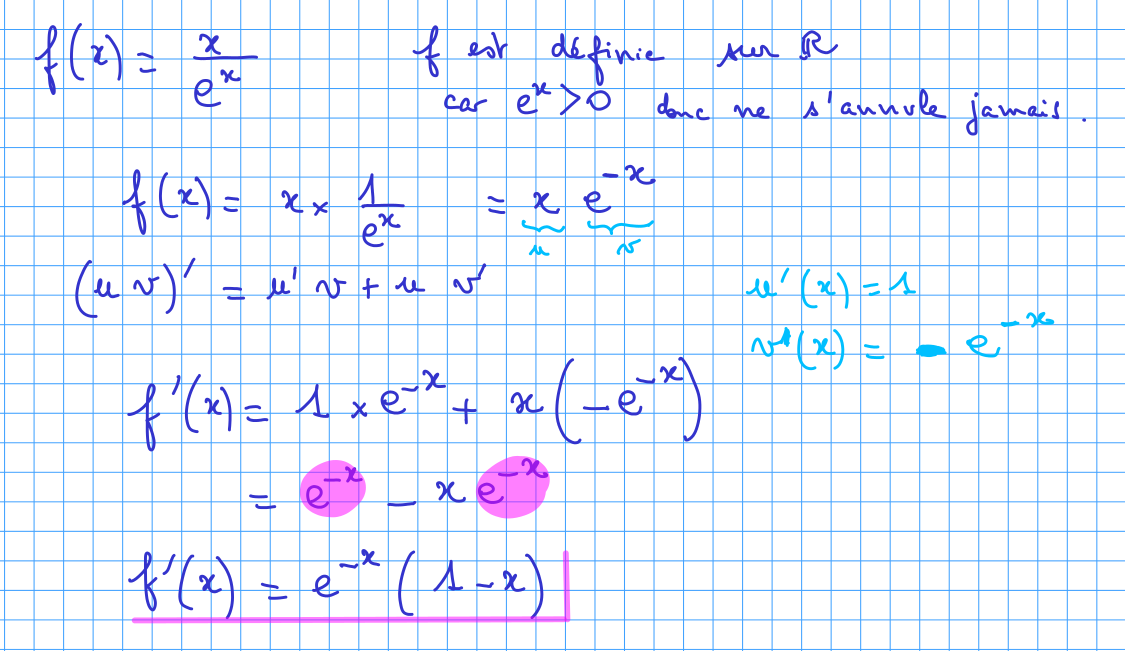 f(x) = x/e^x f est définie sur ℝ
car e^x > 0 donc ne s'annule jamais.
f(x) = x × 1/e^x = x e^{-x}
u v
(u v)' = u' v + u v'
u'(x) = 1
v'(x) = - e^{-x}
f'(x) = 1 × e^{-x} + x(-e^{-x})
= e^{-x} - x e^{-x}
f'(x) = e^{-x} (1 - x)